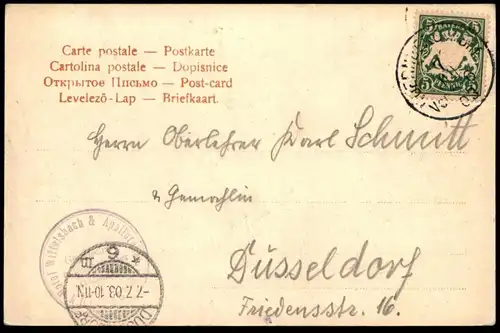 Carte postale — Postkarte
Cartolina postale — Dopisnice
Открытое Письмо — Post-card
Levelező-Lap — Briefkaart.
5 5
5 PFENNIG 5
Herrn Oberlehrer Karl Schmitt
& Gemahlin
Düsseldorf
Friedensstr. 16.
Hotel Wittelsbach &
* 6 m
-7.7.03.10-11N.